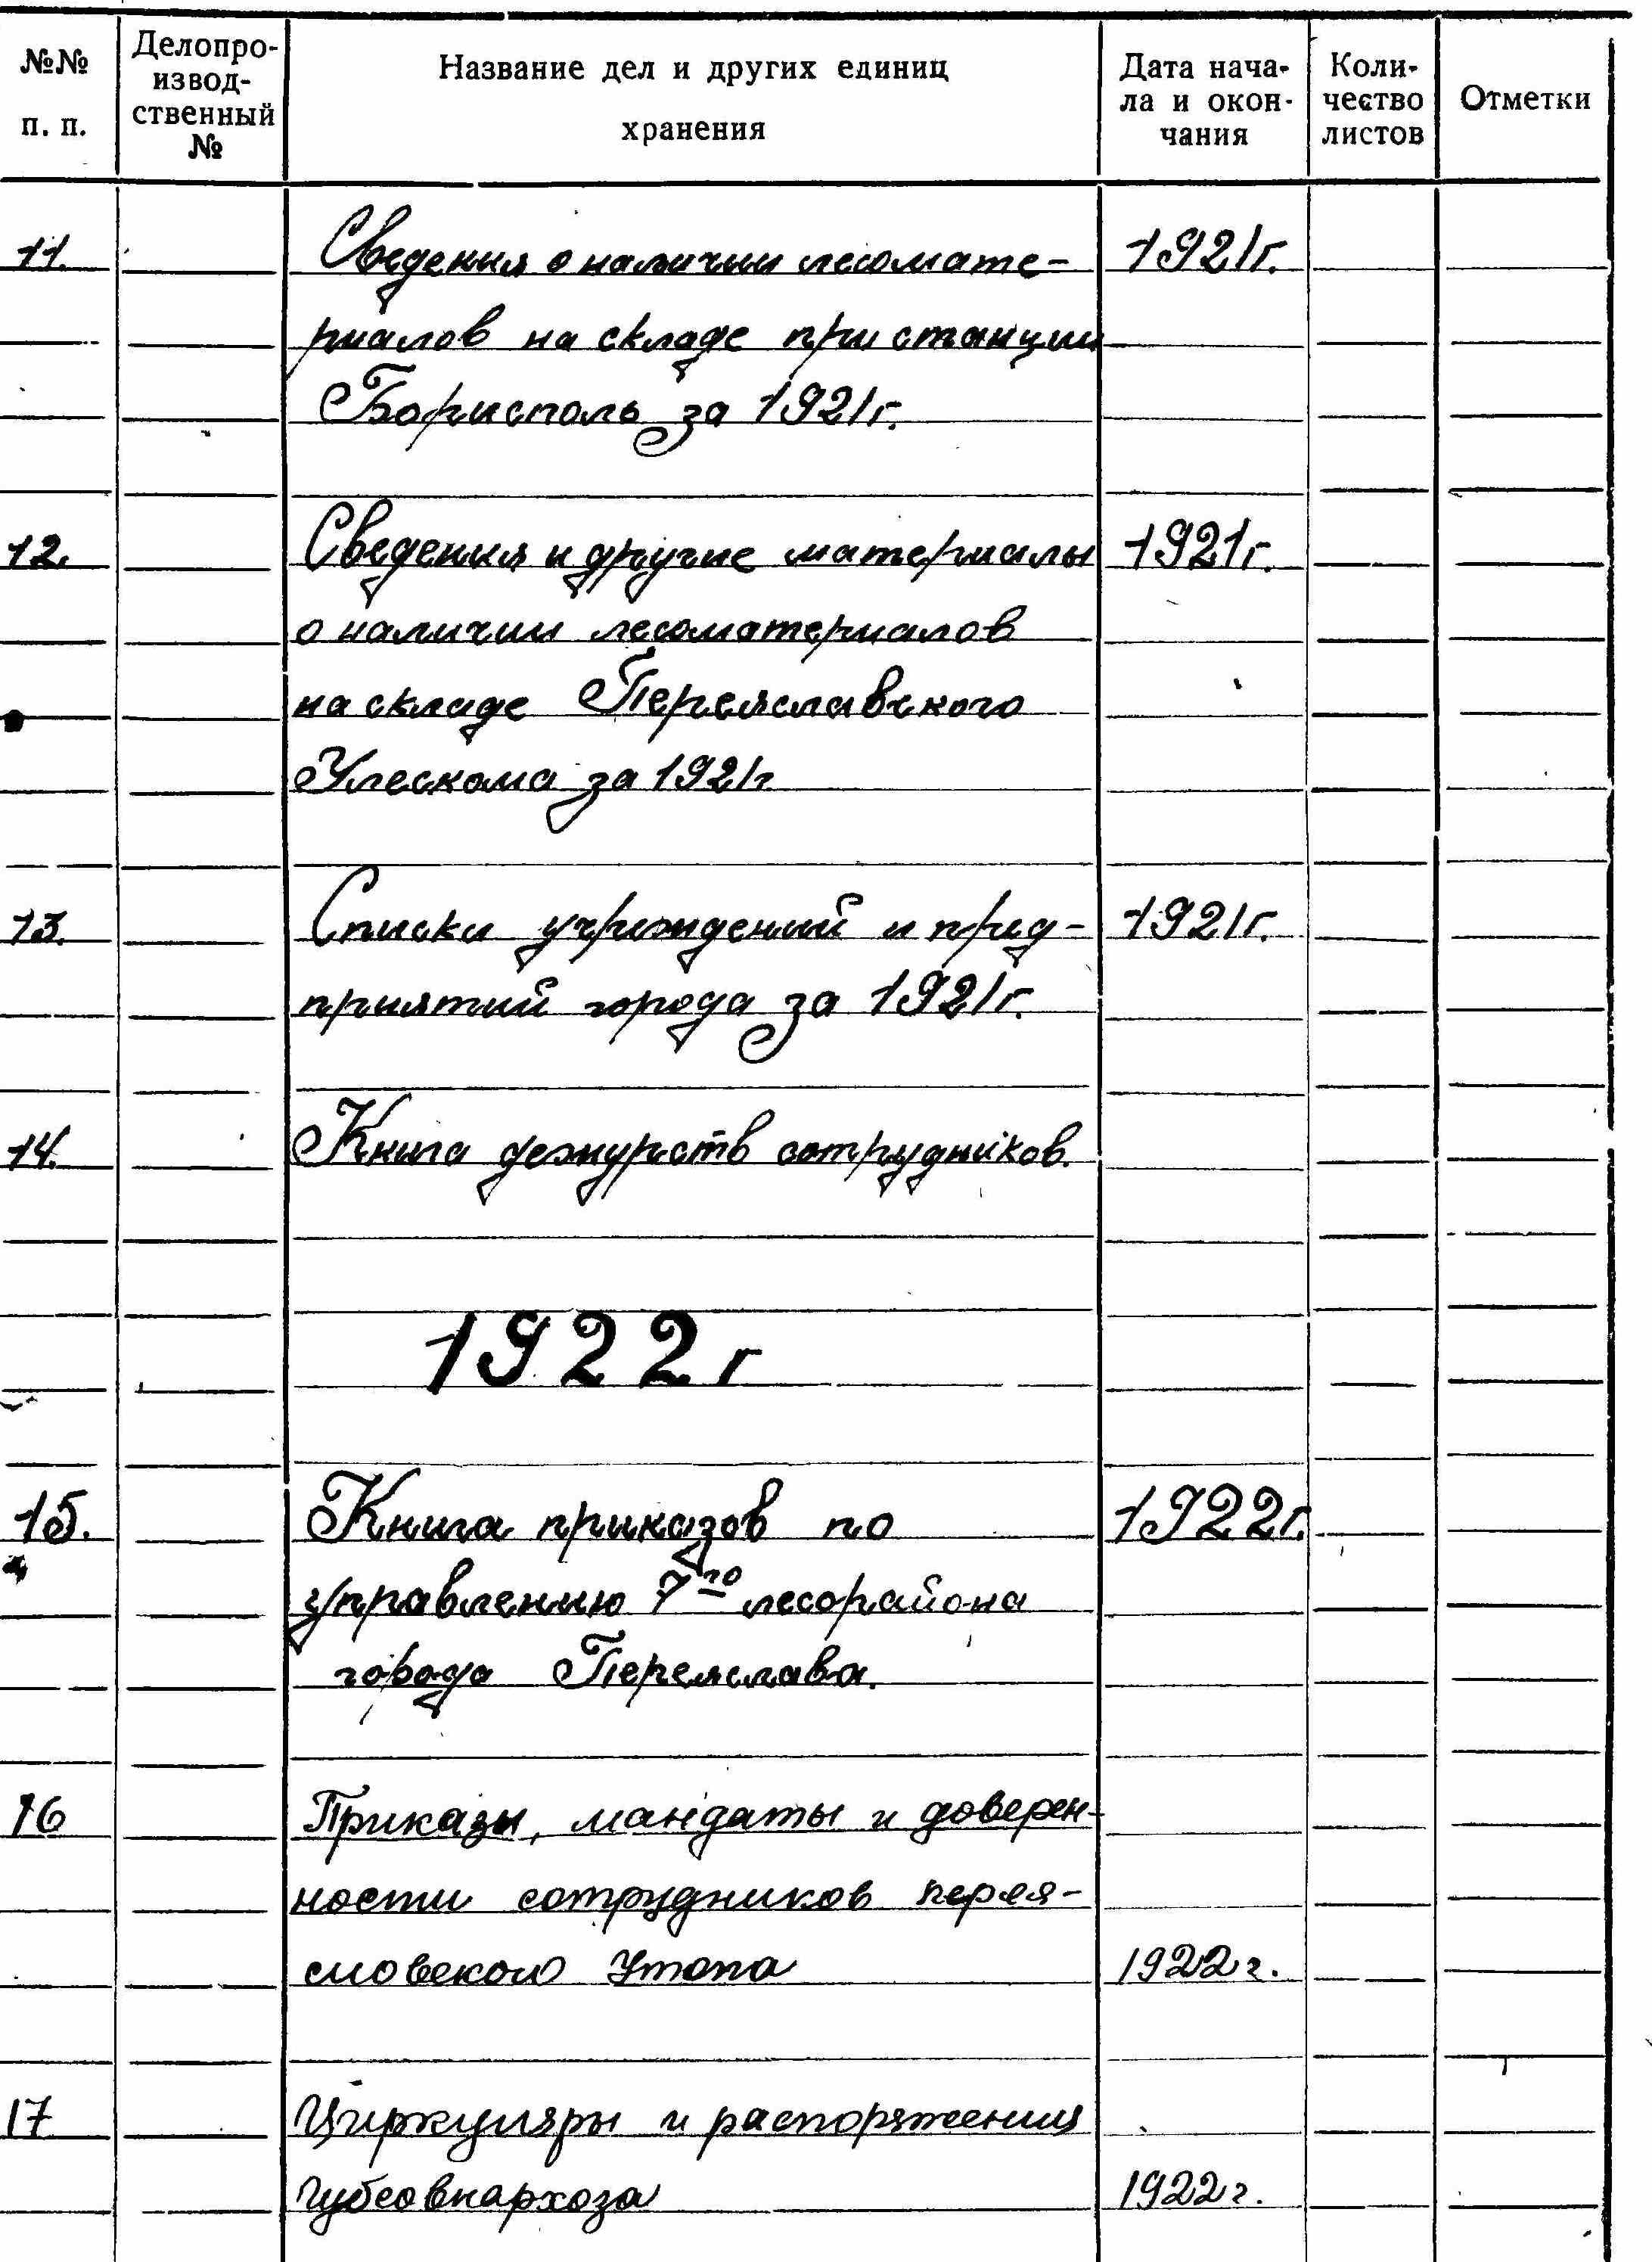 №№ п. п.
Делопро-
извод-
ственный
№
Название дел и других единиц
хранения
Дата нача-
ла и окон-
чания
Коли-
чество
листов
Отметки
11. Сведения о наличии лесомате- 1921г.
риалов на складе при станции
Борисполь за 1921г.
12. Сведения и другие материалы 1921г.
о наличии лесоматериалов
на складе Переяславского
Улескома за 1921г
13. Списки учреждений и пред- 1921г.
приятий города за 1921г.
14. Книга дежурств сотрудников.
1922г
15. Книга приказов по 1922г.
управлению 7го лесорайона
города Переяслава.
16 Приказы, мандаты и доверен-
ности сотрудников перея-
словского Утопа 1922г.
17 Циркуляры и распоряжения
Губсовнархоза 1922г.